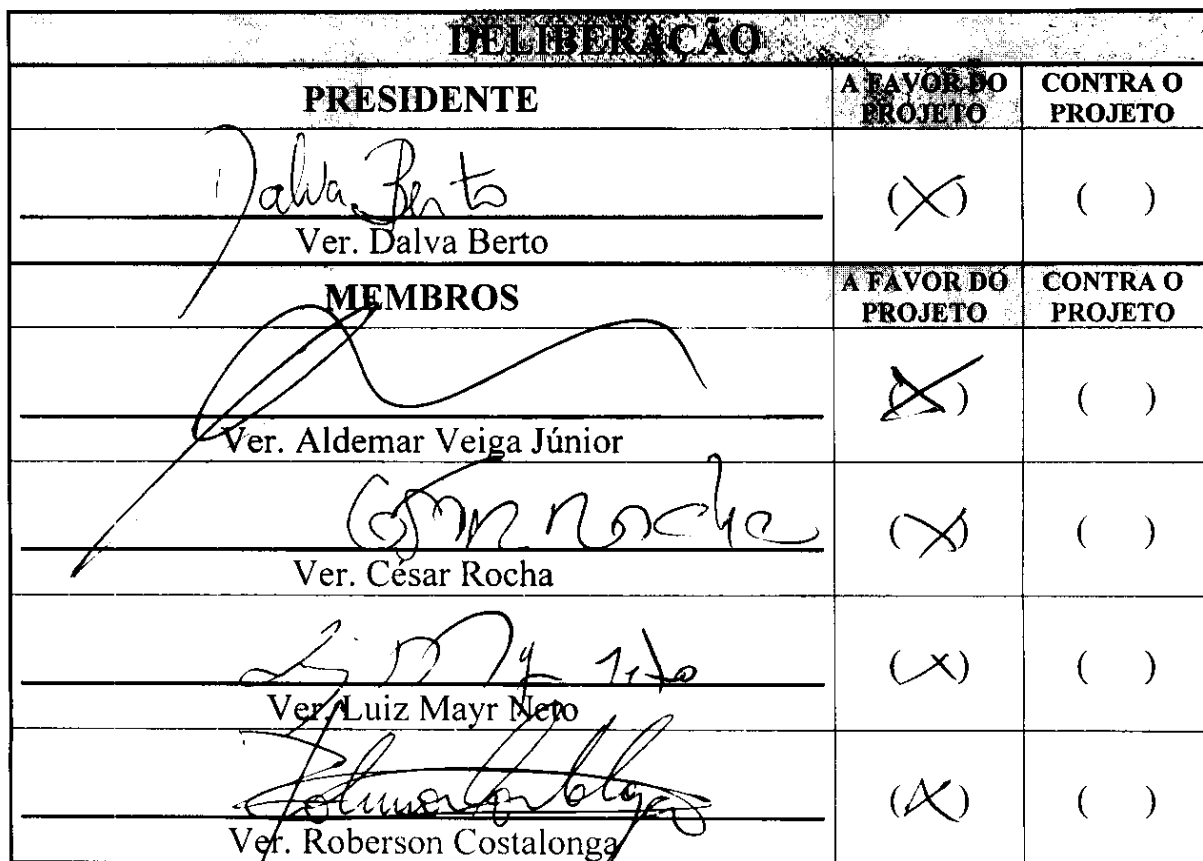 DELIBERAÇÃO
PRESIDENTE
A FAVOR DO
PROJETO
CONTRA O
PROJETO
Dalva Berto
(X) ( )
Ver. Dalva Berto
MEMBROS
A FAVOR DO
PROJETO
CONTRA O
PROJETO
(X) ( )
Ver. Aldemar Veiga Júnior
Rocha
(X) ( )
Ver. César Rocha
(X) ( )
Ver. Luiz Mayr Neto
(X) ( )
Ver. Roberson Costalonga